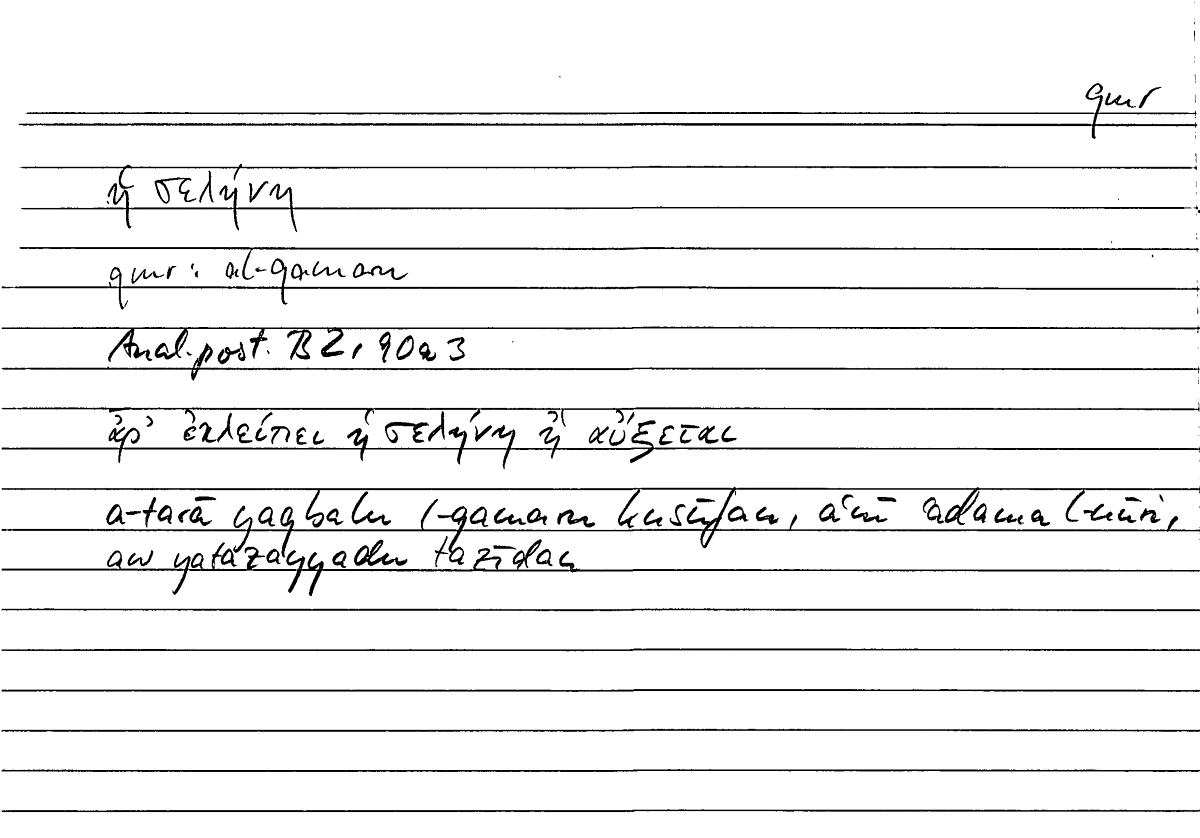 qmr
ἡ σελήνη
qmr: al-qamaru
Anal. post. B 2, 90a 3
ἆρ' ἐκλείπει ἡ σελήνη ἢ αὔξεται
a-tarā yaqbalu l-qamaru kusūfan, aʿnī ʿadama l-nūri,
aw yatazayyadu tazīdan